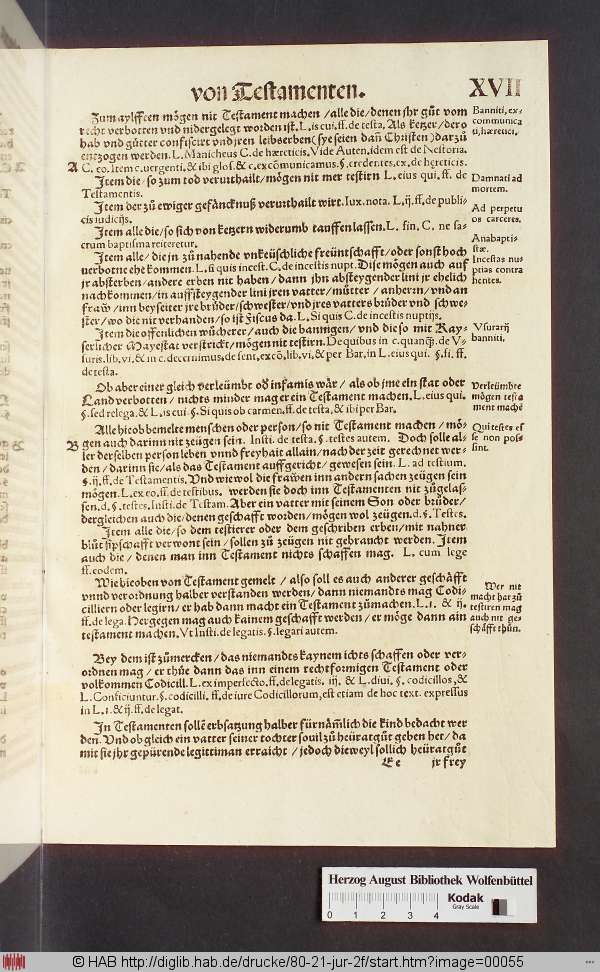 von Testamenten. XVII
Zum aylfften mögen nit Testament machen / alle die / denen jhr gůt vom
recht verbotten vnd nidergelegt worden ist. L. is cui. ff. de testa. Als ketzer / dero
hab vnd gütter confiscirt vnd jren leibserben (sye seien dañ Christen) dar zů
entzogen werden. L. Manicheus C. de hæreticis. Vide Auten, idem est de Nestoria.
A C. eo. Item c. vergenti. & ibi glos. & c, excõmunicamus. §. credentes, ex, de hęreticis.
Item die / so zum tod verurthailt / mögen nit mer testirn L. eius qui. ff. de
Testamentis.
Item der zů ewiger gefäncknuß verurthailt wirt. Iux. nota. L. ij. ff. de publi-
cis iudicijs.
Item alle die / so sich von ketzern widerumb tauffen lassen. L. fin, C. ne sa-
crum baptisma reiteretur.
Item alle / die jn zů nahende vnkeüschliche freüntschafft / oder sonst hoch
verbotne ehe kommen. L. si quis incest. C. de incestis nupt. Dise mögen auch auff
jr absterben / andere erben nit haben / dann jhn absteygender lini jr ehelich
nachkommen / in auffsteygender lini jren vatter / můtter / anherrn / vnd an
fraw / inn beyseiter jre brůder / schwester / vnd jres vatters brůder vnd schwe-
ster / wo die nit verhanden / so ist Fiscus da. L. Si quis C. de incestis nuptijs.
Item die offenlichen wůcherer / auch die bannigen / vnd die so mit Kay-
serlicher Mayestat verstrickt / mögen nit testirn. De quibus in c. quanq̃. de V-
suris. lib. vi, & in c. decernimus, de sent, excõ, lib, vi, & per Bar, in L. eius qui. §. si. ff.
de testa.
Ob aber einer gleich verleümbt oð infamis wär / als ob jme ein stat oder
Land verbotten / nichts minder mag er ein Testament machen. L. eius qui.
§. sed relega, & L. is cui. §. Si quis ob carmen, ff. de testa, & ibi per Bar.
Alle hieob bemelte menschen oder person / so nit Testament machen / mö-
B gen auch darinn nit zeügen sein. Insti. de testa. §. testes autem. Doch solle al-
ler derselben person leben vnnd freyhait allain / nach der zeit gerechnet wer-
den / darinn sie / als das Testament auffgericht / gewesen sein. L. ad testium.
§. ij. ff. de Testamentis. Vnd wiewol die frawen inn andern sachen zeügen sein
mögen. L. ex eo. ff. de testibus. werden sie doch inn Testamenten nit zůgelas-
sen. d. §. testes. Insti. de Testam. Aber ein vatter mit seinem Son oder brůder /
dergleichen auch die / denen geschafft worden / mögen wol zeügen. d. §. Testes.
Item alle die / so dem testierer oder dem geschriben erben / mit nahner
blůt sipschafft verwont sein / sollen zů zeügen nit gebraucht werden. Item
auch die / denen man inn Testament nichts schaffen mag. L. cum lege
ff. eodem.
Wie hieoben von Testament gemelt / also soll es auch anderer geschäfft
vnnd verordnung halber verstanden werden / dann niemandts mag Codi-
cilliern oder legirn / er hab dann macht ein Testament zůmachen. L. 1. & ij.
ff. de lega. Hergegen mag auch kainem geschafft werden / er möge dann ain
testament machen. Vt Insti. de legatis. §. legari autem.
Bey dem ist zůmercken / das niemandts kaynem ichts schaffen oder ver-
ordnen mag / er thüe dann das inn einem rechtformigen Testament oder
volkommen Codicill. L. ex imperfecto. ff. de legatis. iij. & L. diui. §. codicillos, &
L. Conficiuntur. §. codicilli. ff. de iure Codicillorum, est etiam de hoc text. expressus
in L. 1. & ij. ff. de legat.
In Testamenten sollē erbsatzung halber fürnämlich die kind bedacht wer
den. Vnd ob gleich ein vatter seiner tochter souil zů heüratgůt geben het / da
mit sie jhr gepürende legittiman erraicht / jedoch dieweyl sollich heüratgůt
Ee jr frey
Banniti, ex-
communica
ti, hæretici.
Damnati ad
mortem.
Ad perpetu
os carceres.
Anabapti-
stæ.
Incestas nu-
ptias contra
hentes.
Vsurarij
banniti.
Verleümbte
mögen testa
ment machē
Qui testes es
se non pos-
sint.
Wer nit
macht hat zů
testiren mag
auch nit ge-
schäfft thůn.
Herzog August Bibliothek Wolfenbüttel
0 1 2 3 4
Kodak
Gray Scale
© HAB http://diglib.hab.de/drucke/80-21-jur-2f/start.htm?image=00055